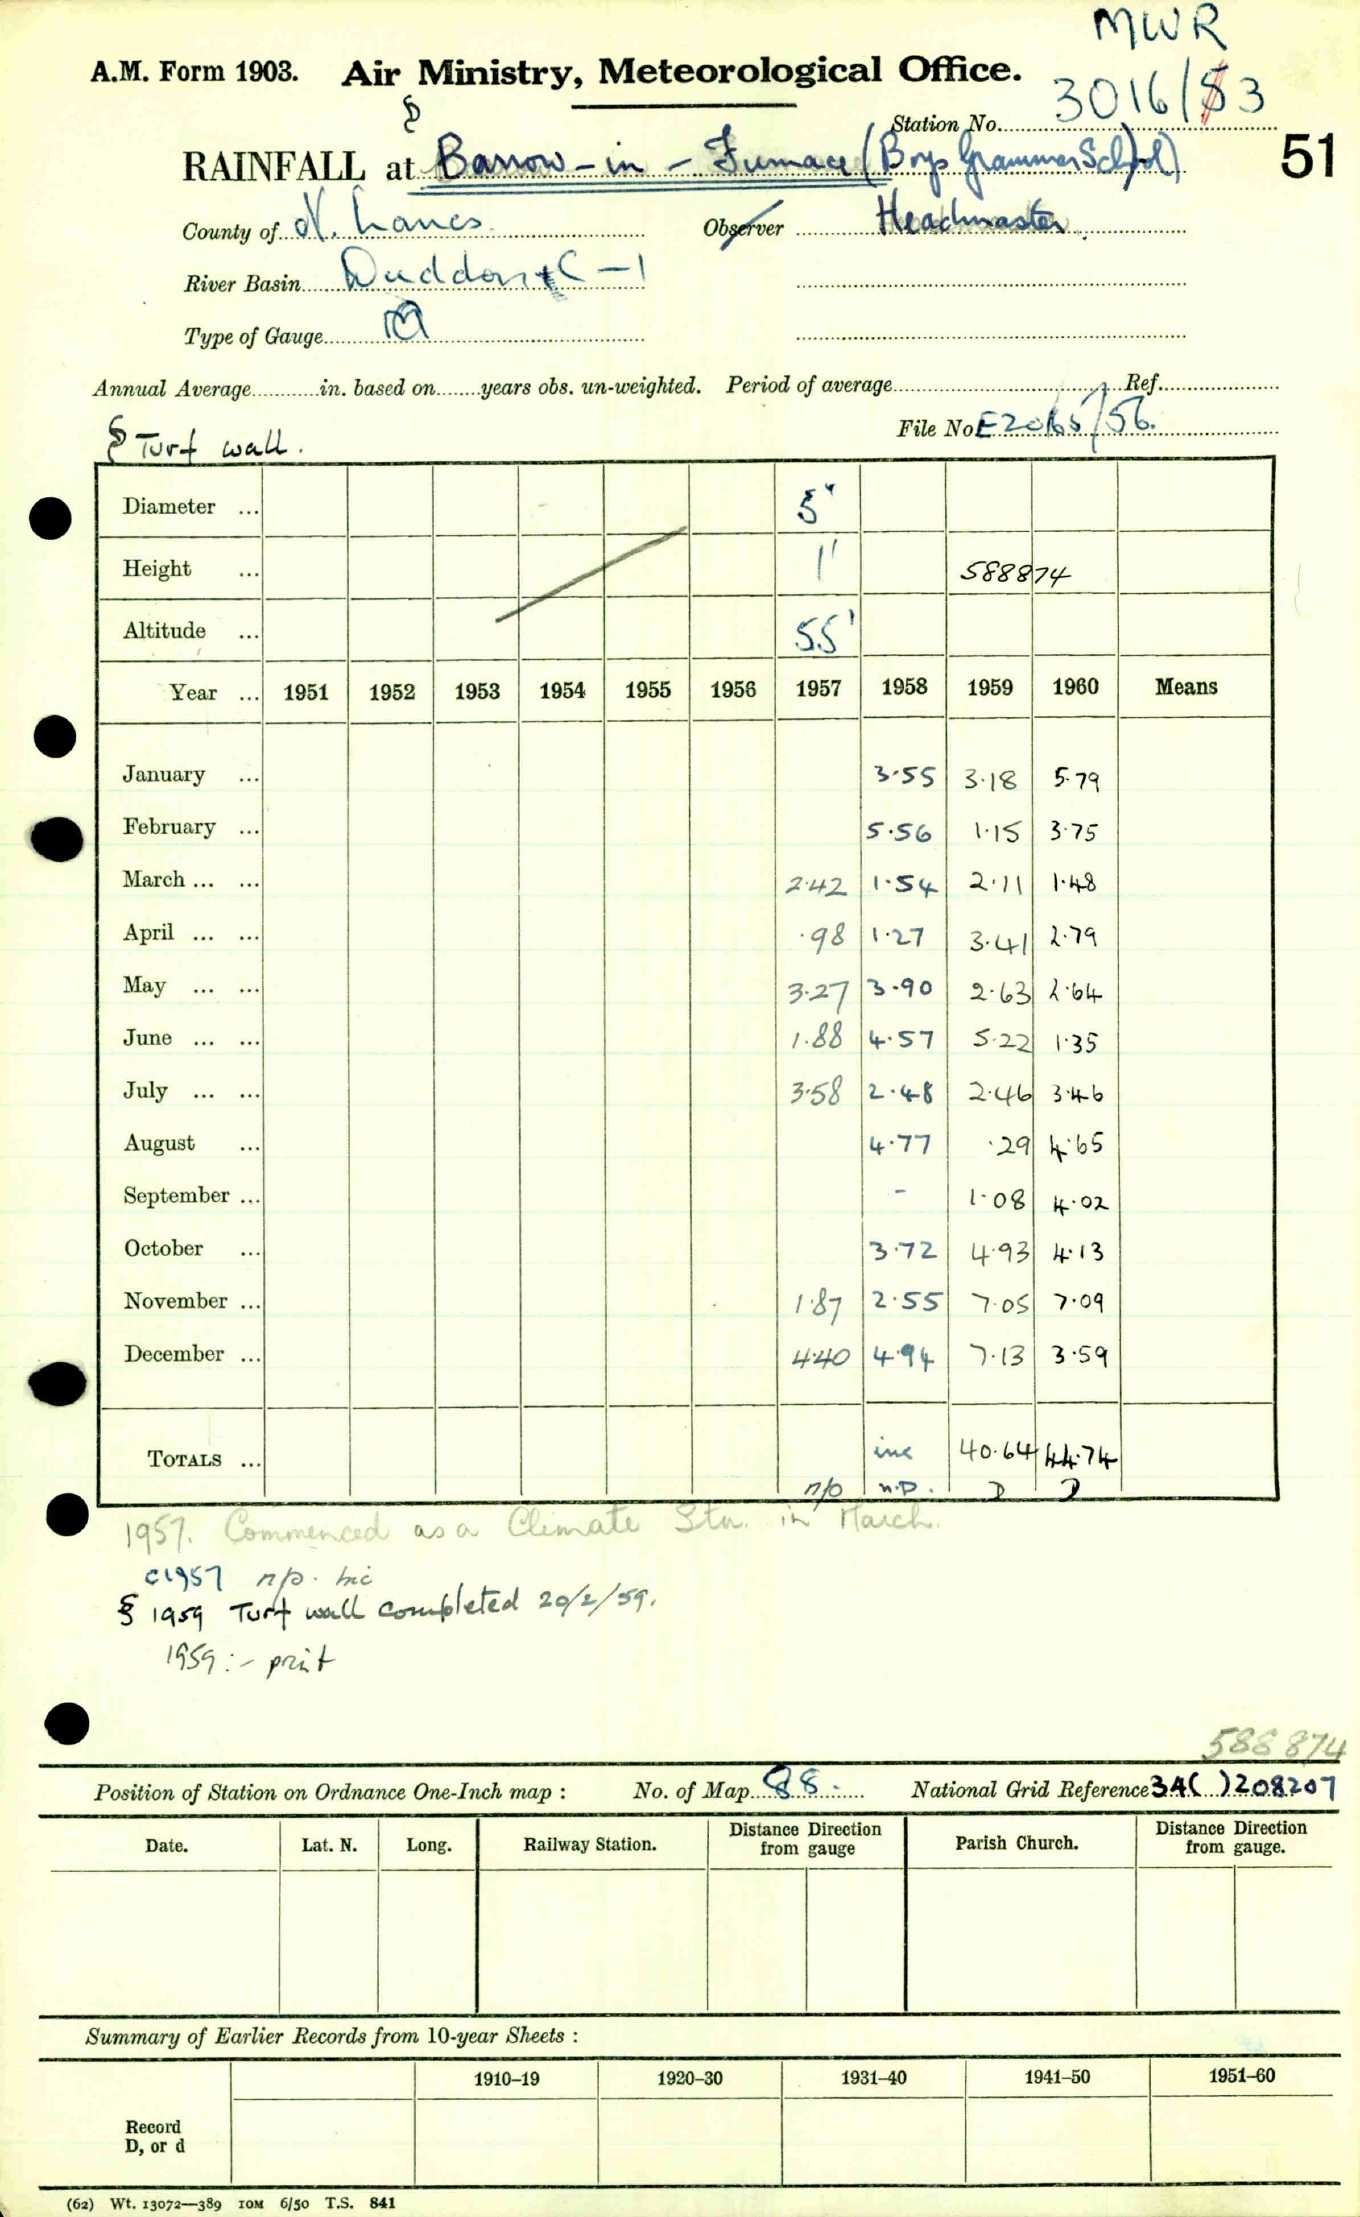 MWR
A.M. Form 1903. Air Ministry, Meteorological Office.
Station No. 3016/83
51
§
RAINFALL at Barrow-in-Furnace (Boys Grammar School)
County of N. Lancs. Observer Headmaster.
River Basin Duddon + C - 1
Type of Gauge M
Annual Average in. based on years obs. un-weighted. Period of average Ref.
File No E2065/56.
§ Turf wall.
Diameter ... 5"
Height ... 1' 588874
Altitude ... 55'
Year ... 1951 1952 1953 1954 1955 1956 1957 1958 1959 1960 Means
January ... 3.55 3.18 5.79
February ... 5.56 1.15 3.75
March ... ... 2.42 1.54 2.11 1.48
April ... ... .98 1.27 3.41 2.79
May ... ... 3.27 3.90 2.63 2.64
June ... ... 1.88 4.57 5.22 1.35
July ... ... 3.58 2.48 2.46 3.46
August ... 4.77 .29 4.65
September ... - 1.08 4.02
October ... 3.72 4.93 4.13
November ... 1.87 2.55 7.05 7.09
December ... 4.40 4.94 7.13 3.59
TOTALS ... inc 40.64 44.74
n/p n.p. D D
1957. Commenced as a Climate Stn. in March.
c1957 n/p. inc
§ 1959 Turf wall completed 20/2/59.
1959:- print
588874
Position of Station on Ordnance One-Inch map : No. of Map 88. National Grid Reference 34( )208207
Date. Lat. N. Long. Railway Station. Distance Direction from gauge Parish Church. Distance Direction from gauge.
Summary of Earlier Records from 10-year Sheets :
1910–19 1920–30 1931–40 1941–50 1951–60
Record
D, or d
(62) Wt. 13072—389 10M 6/50 T.S. 841